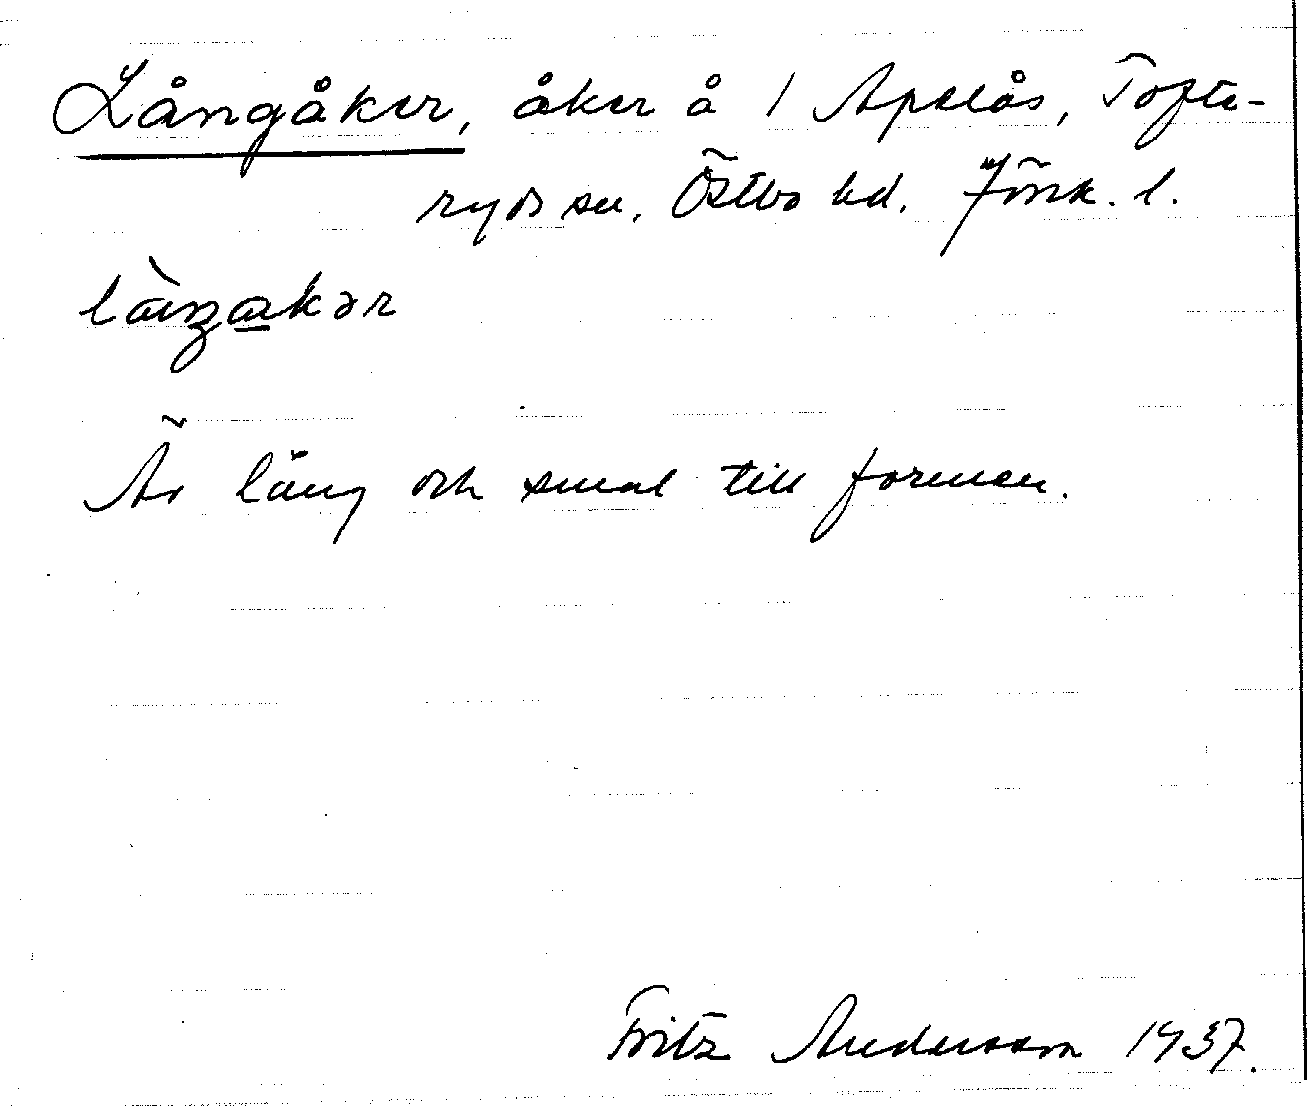 Långåker, åker å 1 Apelås, Tofte-
ryds sn, Östbo hd. Jönk. l.
Är lång och smal till formen.
Fritz Andersson 1937.